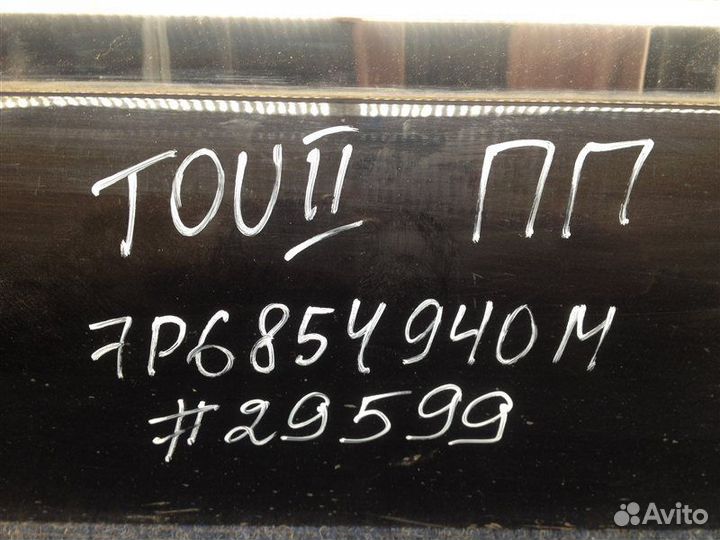 TOUII ПП
7P6854940M
#29599
Avito